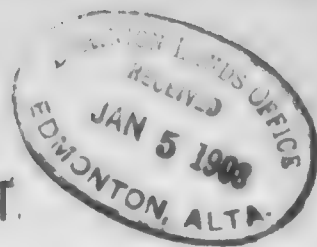 DOMINION LANDS OFFICE
RECEIVED
JAN 5 1908
EDMONTON, ALTA.
T.